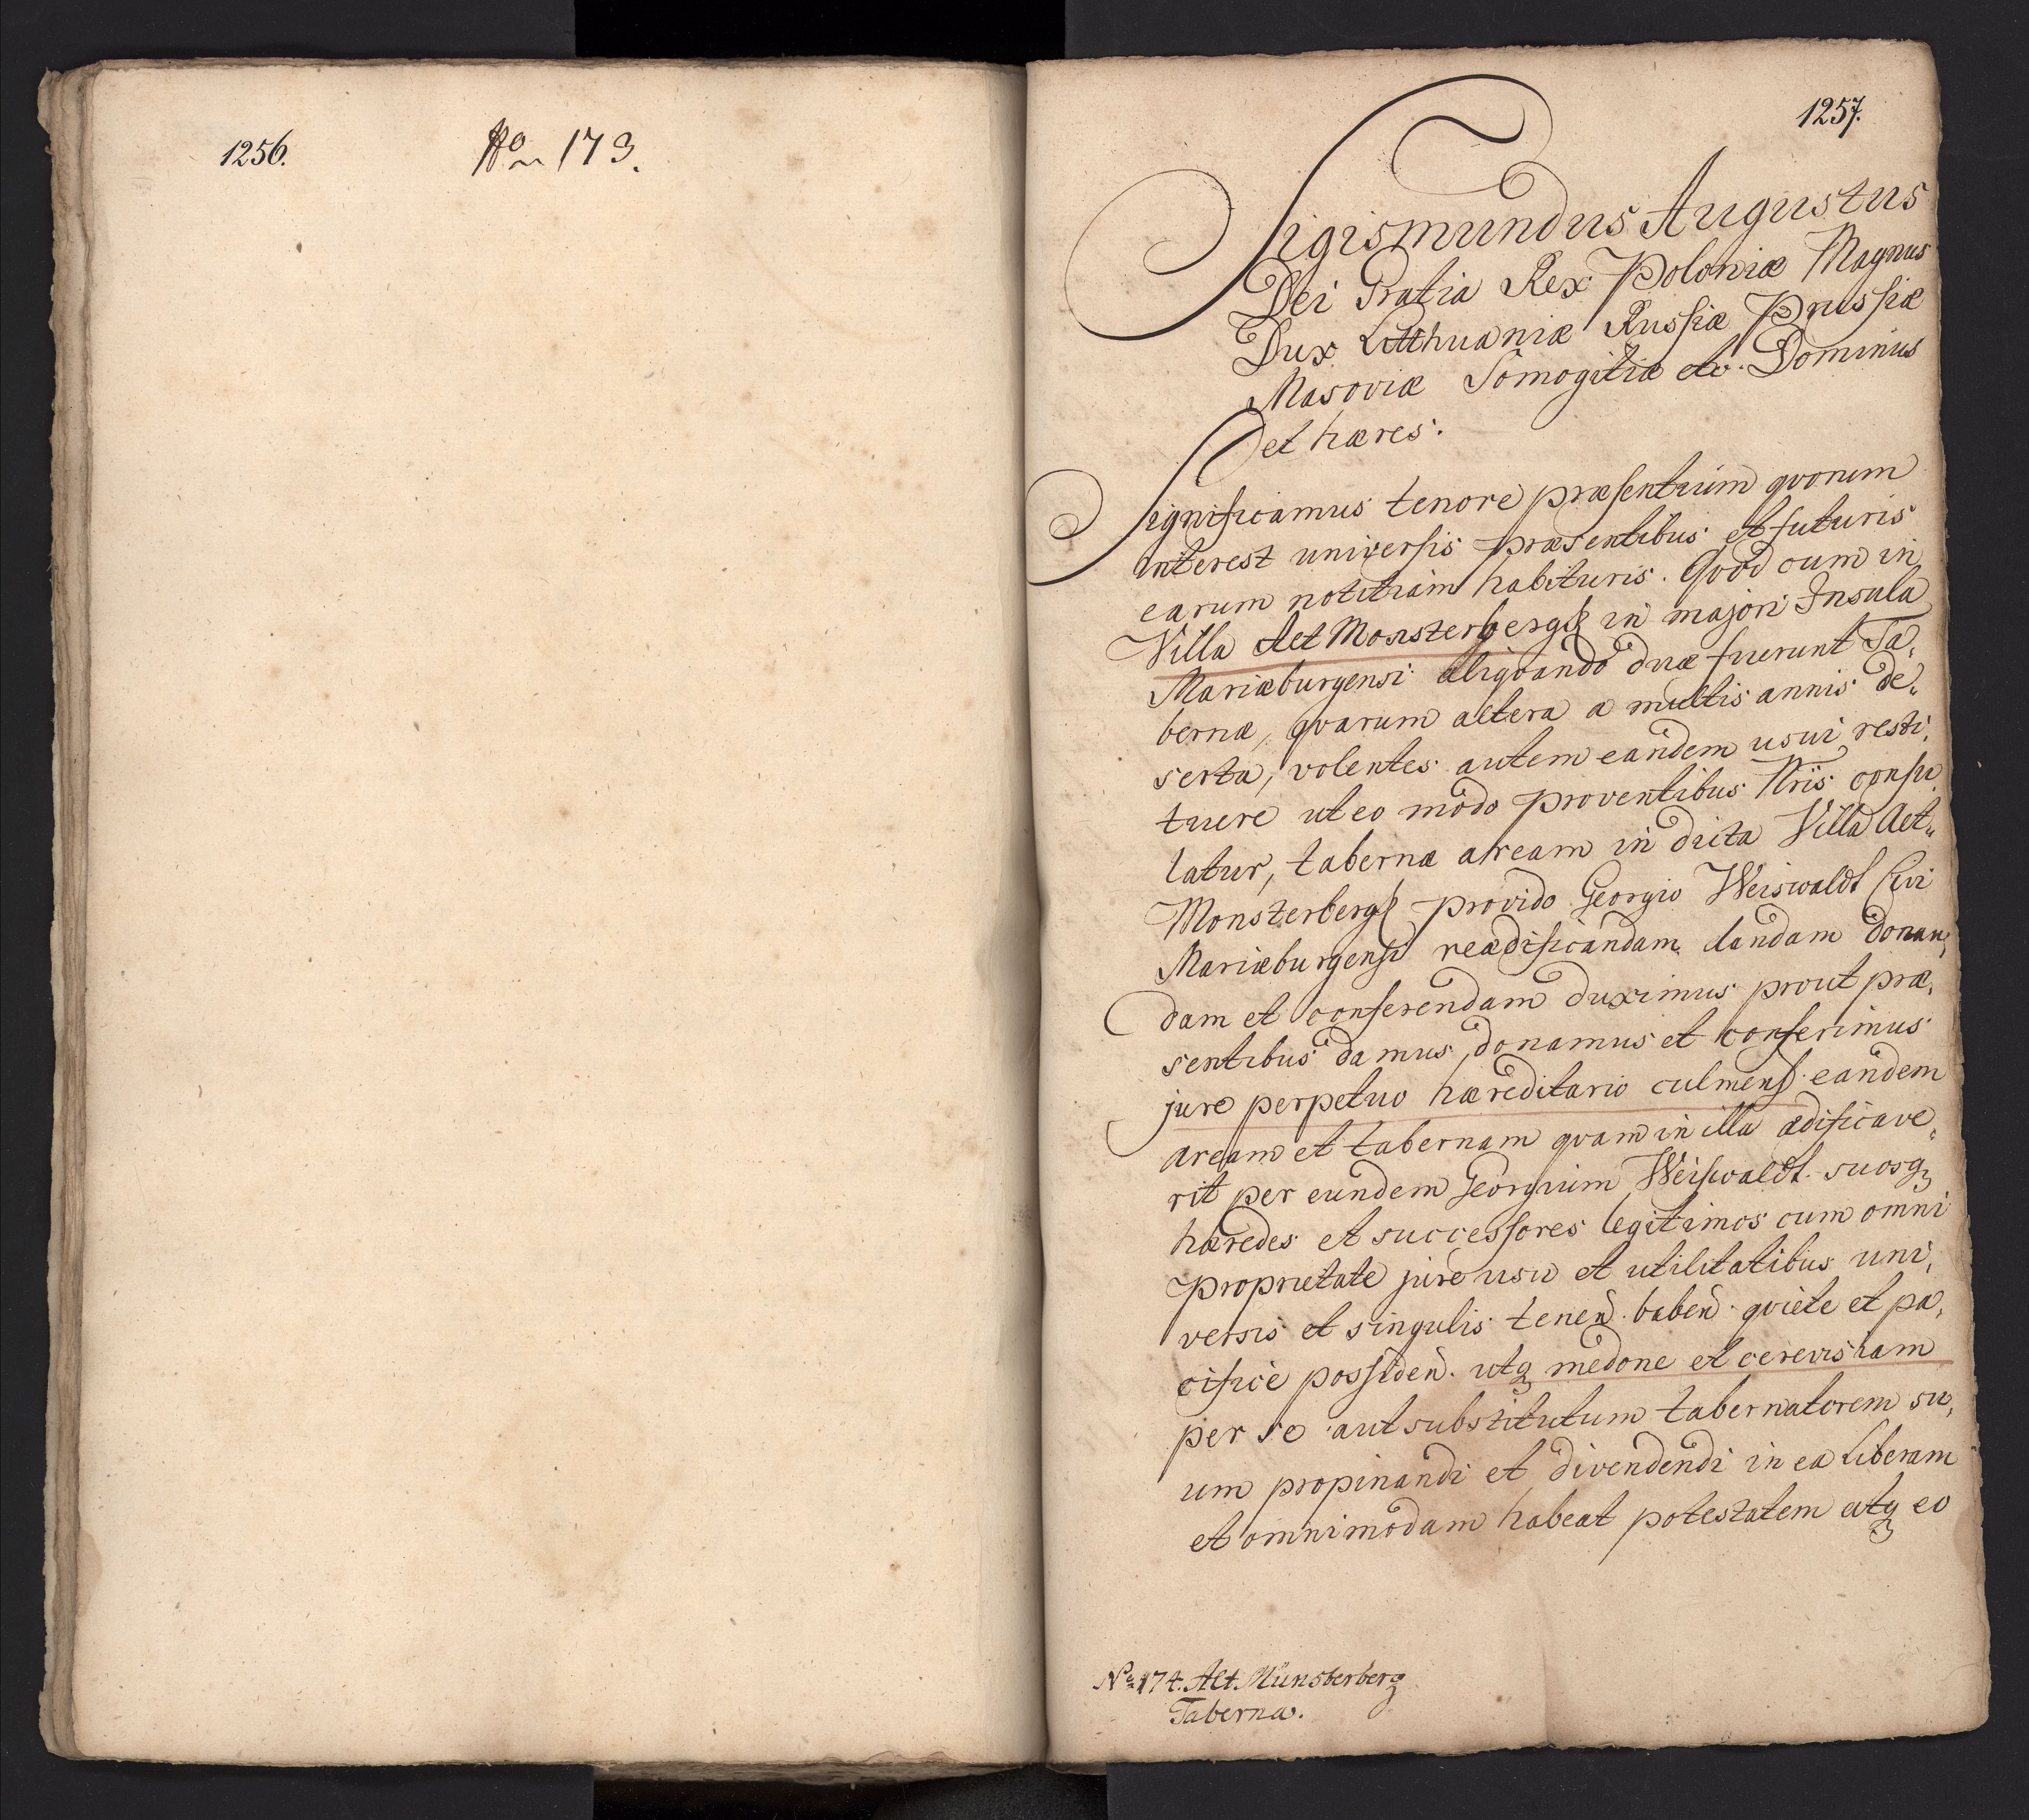 1256.
No 173.
1257.
Sigismundus Augustus
Dei Gratia Rex Poloniæ Magnus
Dux Litthuaniæ Russiæ Prussiæ
Masoviæ Somogitiæ etc. Dominus
et hæres.
Significamus tenore præsentium qvorum
interest universis præsentibus et futuris
earum notitiam habituris. Qvod cum in
Villa Alt Monsterbergk in majori Insula
Mariæburgensi aliqvando duæ fuerunt Ta,
bernæ, qvarum altera a multis annis de,,
serta, volentes autem eandem usui resti,
tuere ut eo modo proventibus Nris consu,
latur, tabernæ aream in dicta Villa Alt,,
Monsterbergk provido Georgio Weiswaldt Civi
Mariæburgensi reædificandam dandam donan,
dam et conferendam duximus prout præ,
sentibus damus, donamus et conferimus
jure perpetuo hæreditario culmens. eandem
aream et tabernam qvam in illa ædificave,,
rit per eundem Georgium Weiswaldt. suosq3
hæredes et successores legitimos cum omni
proprietate jure usu et utilitatibus uni,
versis et singulis tenen̄. haben̄. qviete et pa,
cifice possiden̄. utq3 medone et cerevisiam
per se aut substitutum tabernatorem su,
um propinandi et divendendi in ea liberam
et omnimodam habeat potestatem atq3 eo
No 174. Alt. Münsterberg
Taberna.